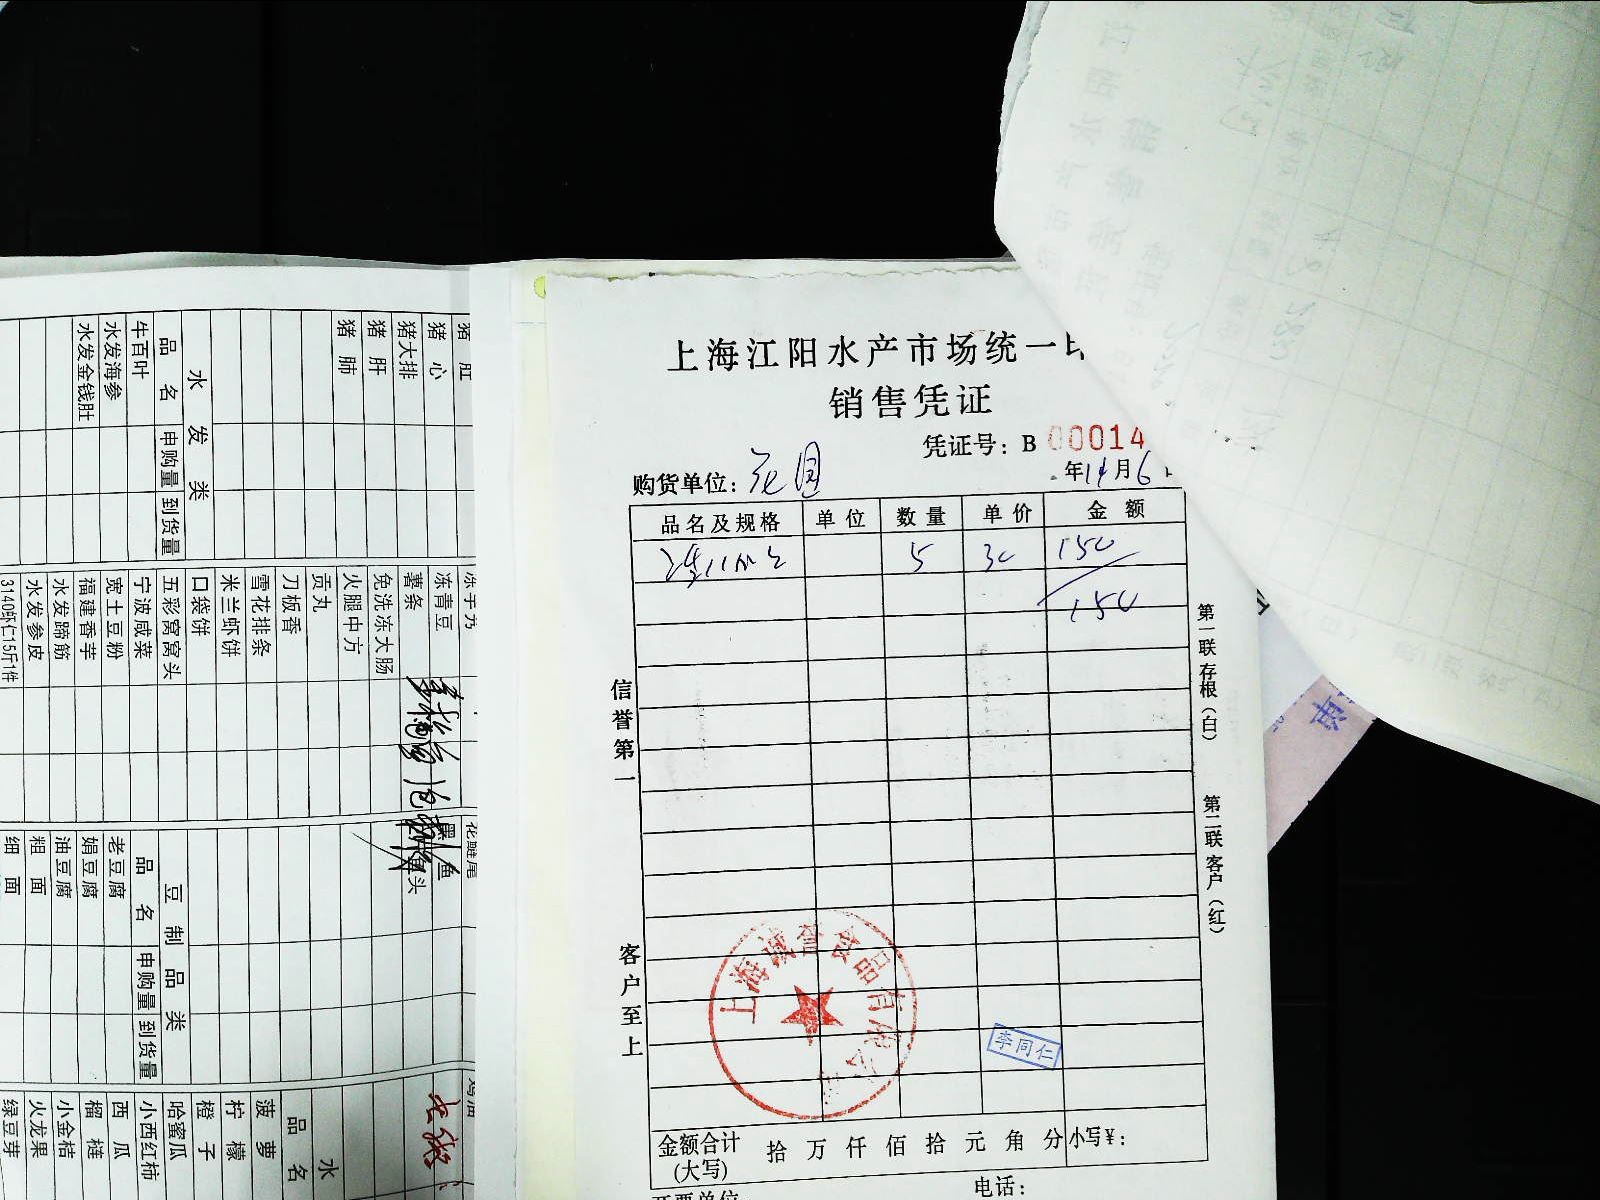 上海江阳水产市场统一
销售凭证
凭证号：B 00014
购货单位：花园
年11月6
品名及规格 单位 数量 单价 金额
5 30 150
150
信誉第一
客户至上
第一联存根（白）
第二联客户（红）
上海诚誉食品有限公司
李同仁
金额合计（大写） 拾 万 仟 佰 拾 元 角 分 小写￥：
电话：
猪肚
猪心
猪大排
猪肝
猪肺
水发类
品名 申购量 到货量
牛百叶
水发海参
水发金钱肚
冻青豆
薯条
免洗冻大肠
火腿中方
贡丸
刀板香
雪花排条
米兰虾饼
口袋饼
五彩窝窝头
宁波咸菜
宽土豆粉
福建香芋
水发蹄筋
水发参皮
3140虾仁15斤1件
花鲢尾
墨鱼
鱼头
豆制品类
品名 申购量 到货量
老豆腐
娟豆腐
油豆腐
粗面
细面
鸡油
水
品名
菠萝
柠檬
橙子
哈蜜瓜
小西红柿
西瓜
榴梿
小金桔
火龙果
绿豆芽
南